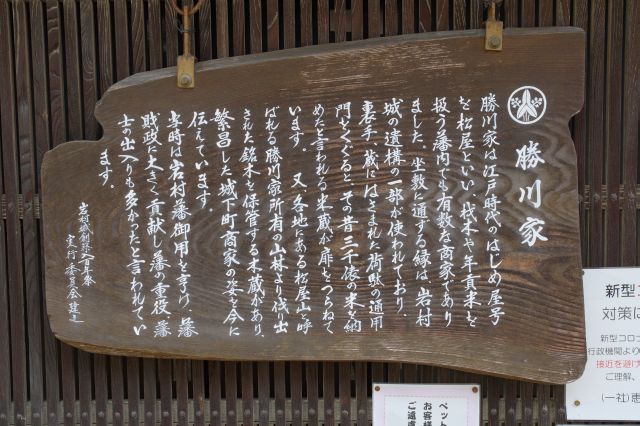 勝川家
勝川家は江戸時代のはじめ屋号
を松屋といい、材木や年貢米を
扱う藩内でも有数な商家であり
ました。坐敷に通する縁は、岩村
城の遺構の一部が使われており、
裏手、蔵にはさまれた荷駄の通用
門をくぐると、その昔三千俵の米を納
めたと言われる米蔵が扉をつらねて
います。又、各地にある松屋山と呼
ばれる勝川家所有の山林より伐り出
された銘木を保管する木蔵があり、
繁昌した城下町商家の姿を今に
伝えています。
当時は岩村藩御用を享け、藩
財政に大きく貢献し藩の重役、藩
士の出入りも多かったと言われてい
ます。
岩村城創築八百年祭
実行委員会建之
新型コ
対策に
新型コロナ
行政機関より
接近を避け
ご理解、
(一社)恵
ペット
お客様
ご遠慮